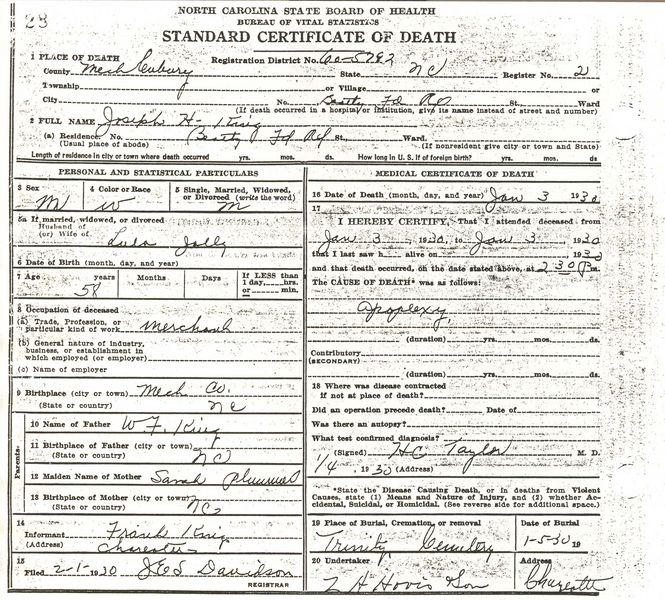 23
NORTH CAROLINA STATE BOARD OF HEALTH
BUREAU OF VITAL STATISTICS
STANDARD CERTIFICATE OF DEATH
1 PLACE OF DEATH Registration District No. 60-5792
County Mecklenburg State NC Register No. 2
Township or Village or
City No. Beatty Fd Rd St., Ward
(If death occurred in a hospital or institution, give its name instead of street and number)
2 FULL NAME Joseph H. King
(a) Residence. No. Beatty Fd Rd St., Ward.
(Usual place of abode) (If nonresident give city or town and State)
Length of residence in city or town where death occurred yrs. mos. ds. How long in U. S. if of foreign birth? yrs. mos. ds.
PERSONAL AND STATISTICAL PARTICULARS
3 Sex 4 Color or Race 5 Single, Married, Widowed, or Divorced (write the word)
M W M
5a If married, widowed, or divorced
Husband of
(or) Wife of Lula Jolly
6 Date of Birth (month, day, and year)
7 Age years Months Days If LESS than
1 day, hrs.
or min.
58
8 Occupation of deceased
(a) Trade, Profession, or
particular kind of work Merchant
(b) General nature of industry,
business, or establishment in
which employed (or employer)
(c) Name of employer
9 Birthplace (city or town) Meck Co.
(State or country) NC
Parents
10 Name of Father W F. King
11 Birthplace of Father (city or town)
(State or country) NC
12 Maiden Name of Mother Sarah
13 Birthplace of Mother (city or town)
(State or country) NC
14
Informant Frank King
(Address) Charlotte
15
Filed 2-1-1930 Davidson
REGISTRAR
MEDICAL CERTIFICATE OF DEATH
16 Date of Death (month, day, and year) Jan 3 1930
17
I HEREBY CERTIFY, That I attended deceased from
Jan 3 1930, to Jan 3 1930
that I last saw h alive on 1930
and that death occurred, on the date stated above, at 2 30 P m.
The CAUSE OF DEATH* was as follows:
Apoplexy
(duration) yrs. mos. ds.
Contributory
(SECONDARY)
(duration) yrs. mos. ds.
18 Where was disease contracted
if not at place of death?
Did an operation precede death? Date of
Was there an autopsy?
What test confirmed diagnosis?
(Signed) HC Taylor M. D.
1/4 1930 (Address)
*State the Disease Causing Death, or in deaths from Violent
Causes, state (1) Means and Nature of Injury, and (2) whether Ac-
cidental, Suicidal, or Homicidal. (See reverse side for additional space.)
19 Place of Burial, Cremation, or removal Date of Burial
Trinity Cemetery 1-5-30 19
20 Undertaker Address
Z A Hovis Son Charlotte